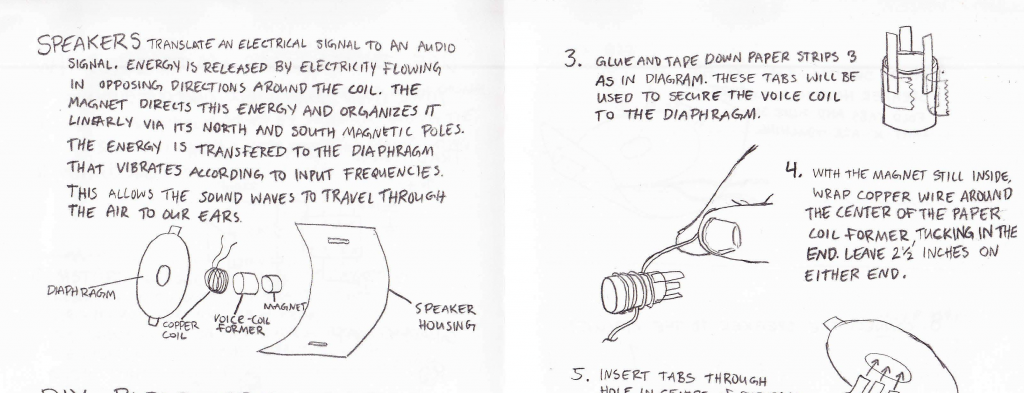 SPEAKERS TRANSLATE AN ELECTRICAL SIGNAL TO AN AUDIO
SIGNAL. ENERGY IS RELEASED BY ELECTRICITY FLOWING
IN OPPOSING DIRECTIONS AROUND THE COIL. THE
MAGNET DIRECTS THIS ENERGY AND ORGANIZES IT
LINEARLY VIA ITS NORTH AND SOUTH MAGNETIC POLES.
THE ENERGY IS TRANSFERED TO THE DIAPHRAGM
THAT VIBRATES ACCORDING TO INPUT FREQUENCIES.
THIS ALLOWS THE SOUND WAVES TO TRAVEL THROUGH
THE AIR TO OUR EARS.
DIAPHRAGM
COPPER
COIL
VOICE-COIL
FORMER
MAGNET
SPEAKER
HOUSING
DIY
3. GLUE AND TAPE DOWN PAPER STRIPS 3
AS IN DIAGRAM. THESE TABS WILL BE
USED TO SECURE THE VOICE COIL
TO THE DIAPHRAGM.
4. WITH THE MAGNET STILL INSIDE,
WRAP COPPER WIRE AROUND
THE CENTER OF THE PAPER
COIL FORMER, TUCKING IN THE
END. LEAVE 2½ INCHES ON
EITHER END.
5. INSERT TABS THROUGH
HOLE IN